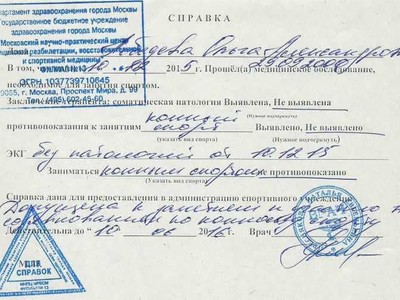 СПРАВКА
Департамент здравоохранения города Москвы
Государственное бюджетное учреждение
здравоохранения города Москвы
Московский научно-практический центр
медицинской реабилитации, восстановительной
и спортивной медицины
ОГРН 1037739710645
г. Москва, Проспект Мира, д. 99
Лебедева Ольга Александровна
В том, что 2015 г. Прошёл(а) медицинское обследование,
необходимое для занятия спортом.
Заключение терапевта: соматическая патология Выявлена, Не выявлена
(Нужное подчеркнуть)
противопоказания к занятиям конный спорт Выявлено, Не выявлено
(указать вид спорта) (Нужное подчеркнуть)
ЭКГ без патологии от 10.12.15
Заниматься конным спортом противопоказано
(Указать вид спорта)
Справка дана для предоставления в административно спортивного учреждение
Допущена к занятиям и участию в
соревнованиях по конному спорту
Действительна до " 10 " 06 2016 г. Врач
ДЛЯ
СПРАВОК